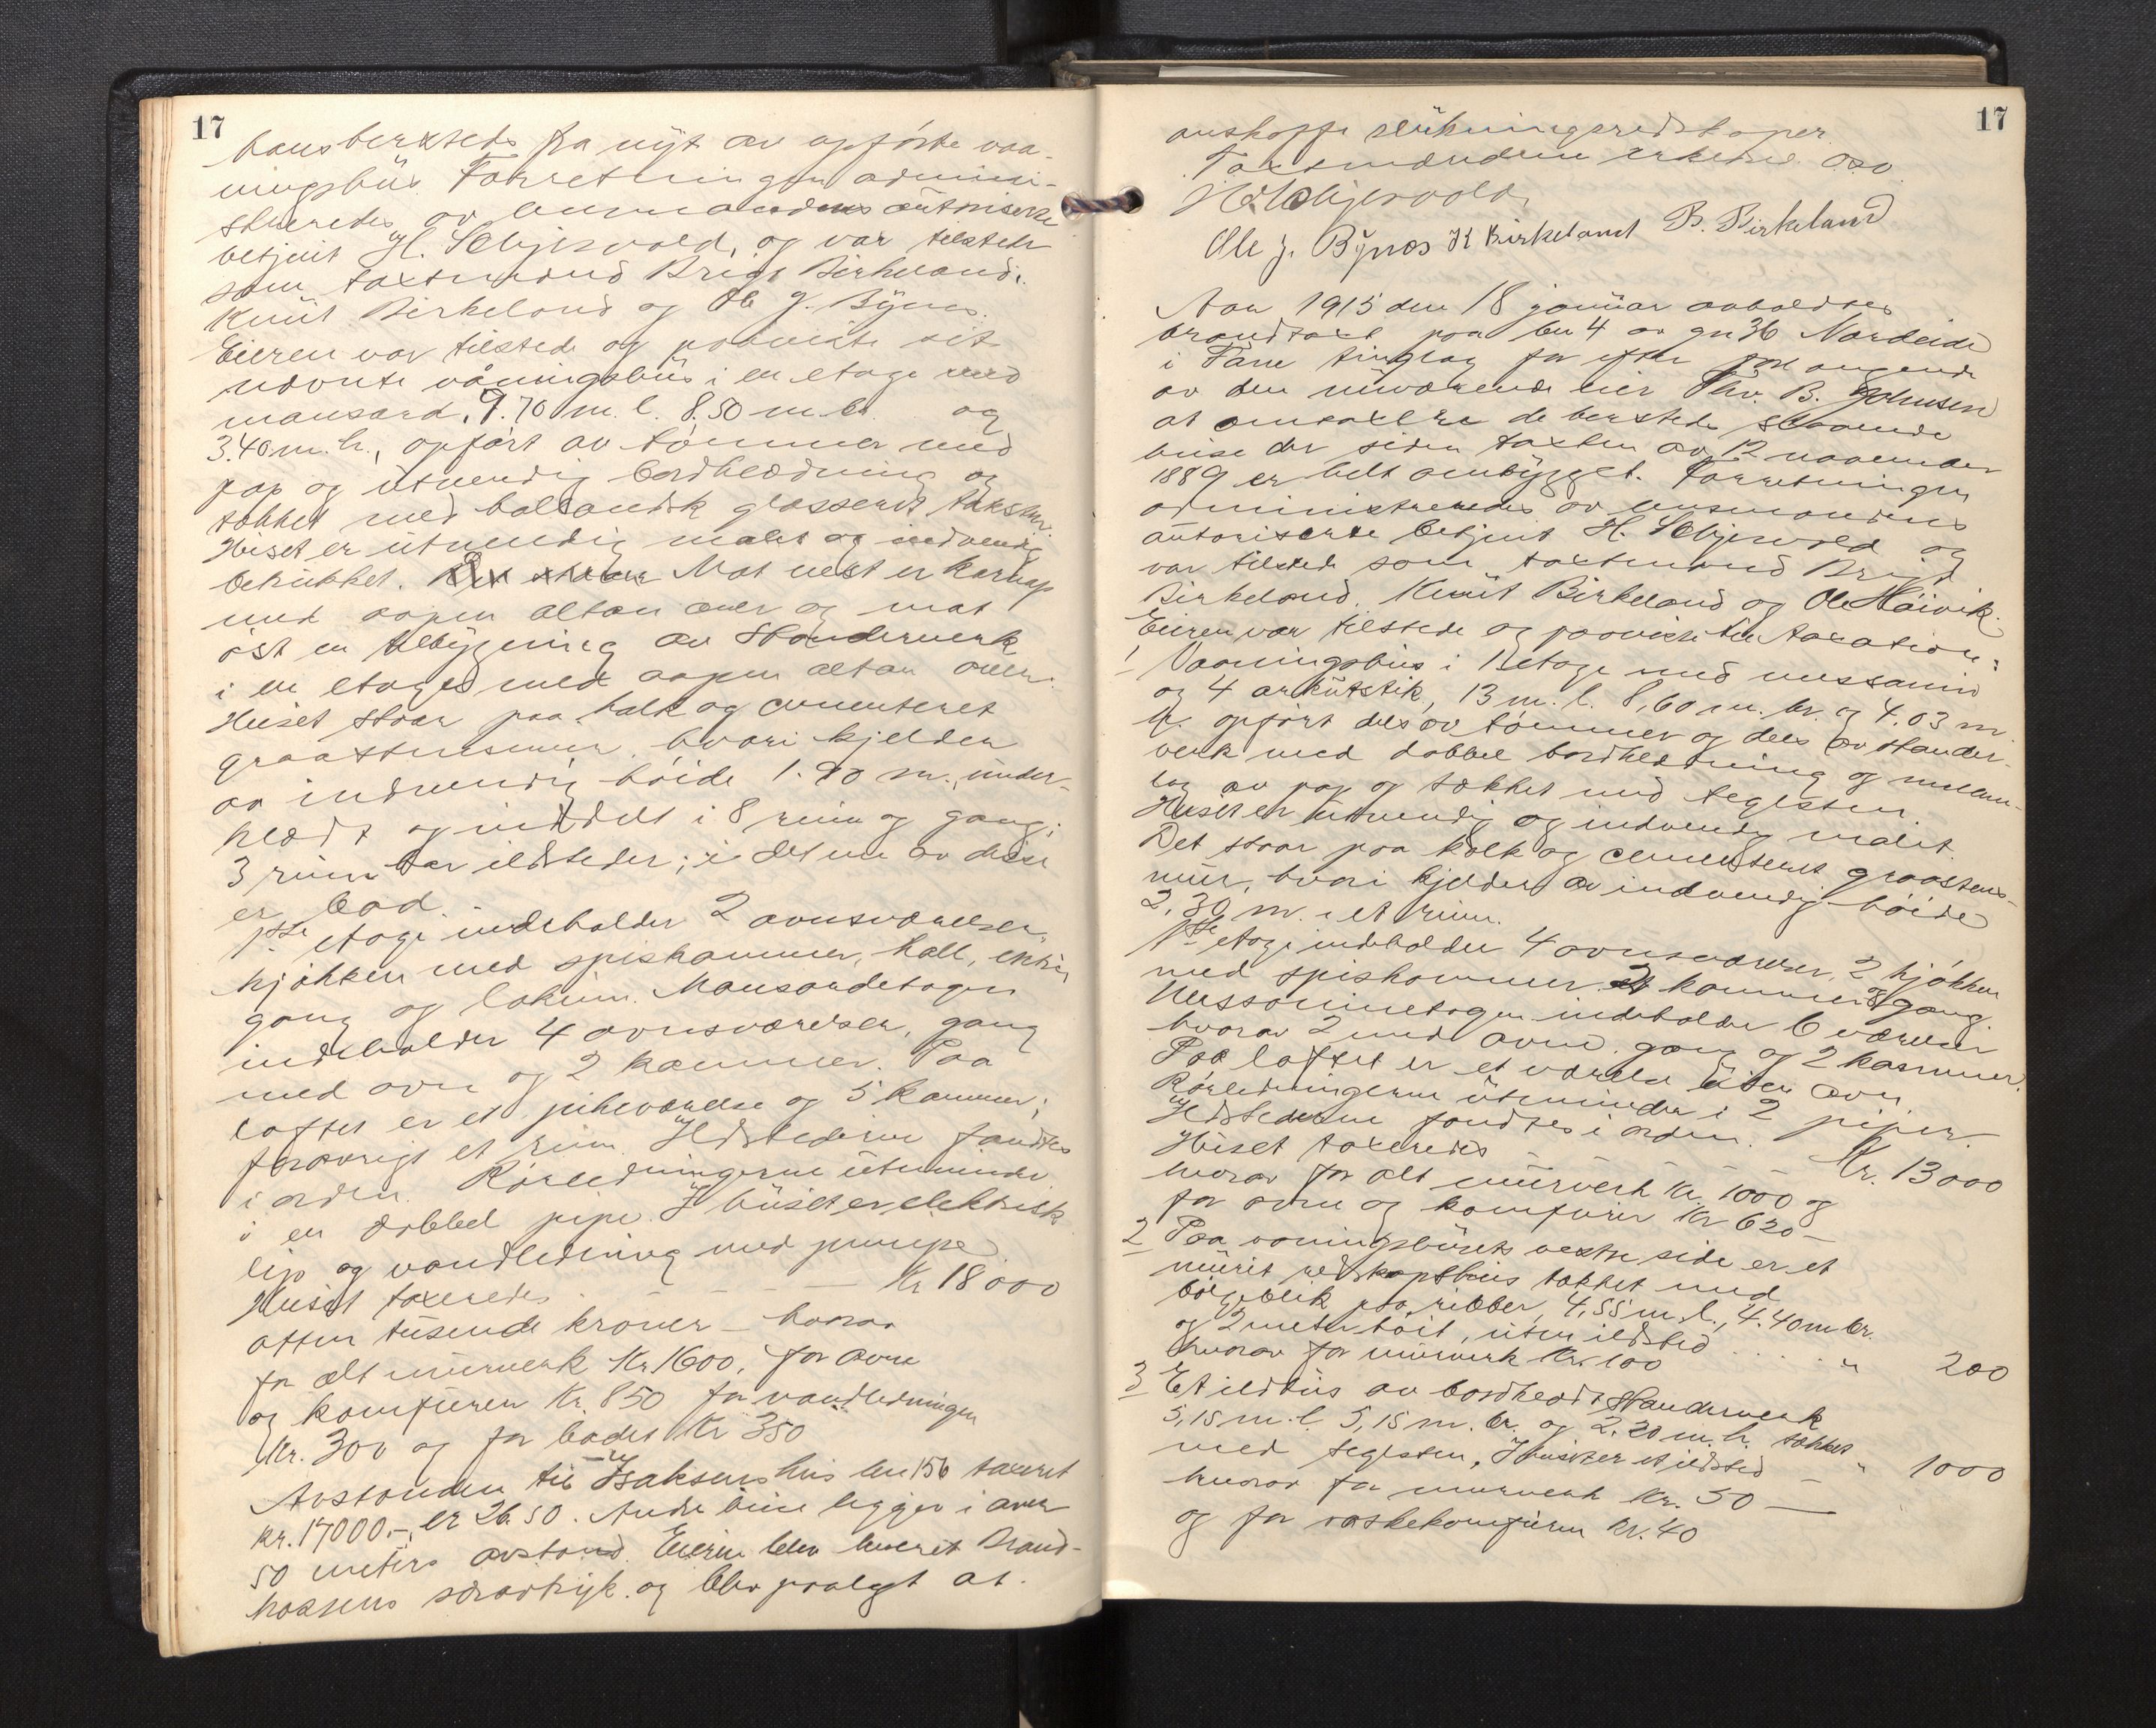 17
hans bersteds fra nyt av opførte vaa-
ningshus. Forretningen admini-
streredes av lensmandens autoriserte
betjent H. Schjersvold, og var tilstede
som taxtmænd Brigt Birkeland,
Knut Birkeland og Ole J. Bynes.
Eieren var tilstede og paaviste sit
nævnte våningshus i en etage med
mansard, 9.70 m. l. 8.50 m. br. og
3.40 m. h., opført av tømmer med
pap og utvendig bordklædning og
tækket med hollandsk glasseret taksten.
Huset er utvendig malet og indvendig
betrukket. Mot vest er karnap
med aapen altan over og mot
øst en tilbygning av Standerverk
i en etage med aapen altan over.
Huset staar paa kalk og cementeret
graastensmur, hvori kjelder
av indvendig høide 1.90 m., under-
klædt og inddelt i 8 rum og gang;
3 rum har ildsteder; i det ene av disse
er bad.
1ste etage indeholder 2 ovnsværelser,
kjøkken med spiskammer, hall, entre
gang og lokum. Mansardetagen
indeholder 4 ovnsværelser, gang
med ovn og 2 kammer. Paa
loftet er et pikeværelse og 5 kammer;
forøvrigt et rum. Ildstederne fandtes
i orden. Rørledningerne utmunde
i en dobbel pipe. I huset er elektrisk
lys og vandledning med pumpe
Huset taxeredes - - - Kr 18000
atten tusende kroner - hvorav
for alt murverk Kr. 1600, for ovne
og komfuren Kr. 850 for vandledningen
Kr. 300 og for badet Kr 350
Avstanden til Isaksens hus bn 156 taxeret
Kr. 17000.-, er 26.50. Andre huse ligger i over
50 meters avstand. Eieren blev leveret Brand-
kassens særavtryk og blev paalagt at
17
anskaffe slukningsredskaper.
Taxtmændene erkjendte oso
H. Schjersvold
Ole J. Bynes K Birkeland B. Birkeland
Aar 1915 den 18 januar avholdtes
brandtaxt paa bn 4 av gn 36 Nordeide
i Fane tinglag for efter forlangende
av den nuværende eier Thv. B. Johnsen
at omtaxere de bersteds staaende
huse der siden taxten av 12 november
1889 er helt ombygget. Forretningen
administreredes av lensmandens
autoriserte betjent H. Schjersvold og
var tilstede som taxtmænd Brigt
Birkeland, Knut Birkeland og Ole Høivik.
Eieren var tilstede og paaviste til taxation:
1 Vaaningshus i 1 etage med messanin
og 4 arkutstik, 13 m. l. 8,60 m. br. og 4.03 m.
h. opført dels av tømmer og dels av stander-
verk med dobbel bordklædning og mellem-
lag av pap og tækket med teglsten.
Huset er utvendig og indvendig malet.
Det staar paa kalk og cementeret graastens-
mur, hvori kjelder av indvendig høide
2,30 m. i et rum.
1ste etage indeholder 4 ovnsværelser, 2 kjøkken
med spiskammer 2 kammer og gang.
Messaninetagen indeholder 6 værelser
hvorav 2 med ovne, gang og 2 kammer.
Paa loftet er et værelse uten ovn
Rørledningerne utmunder i 2 piper.
Ildstederne fandtes i orden.
Huset taxeredes - - - - Kr. 13000
hvorav for alt murverk Kr. 1000 og
for ovne og komfurer Kr 620 -
2 Paa vaaningshusets vestre side er et
muret redskapshus tækket med
bølgeblik paa ribber, 4,55 m. l., 4.40 m br.
og 2 meter høit, uten ildsted
hvorav for murverk Kr. 100 . . . . " 200
3 Et ildhus av bordklædt Standerverk
5,15 m. l. 5,15 m. br. og 2,20 m. h. tækket
med teglsten, I huset er et ildsted - " 1000
hvorav for murverk Kr. 50 -
og for vaskekomfuren Kr. 40